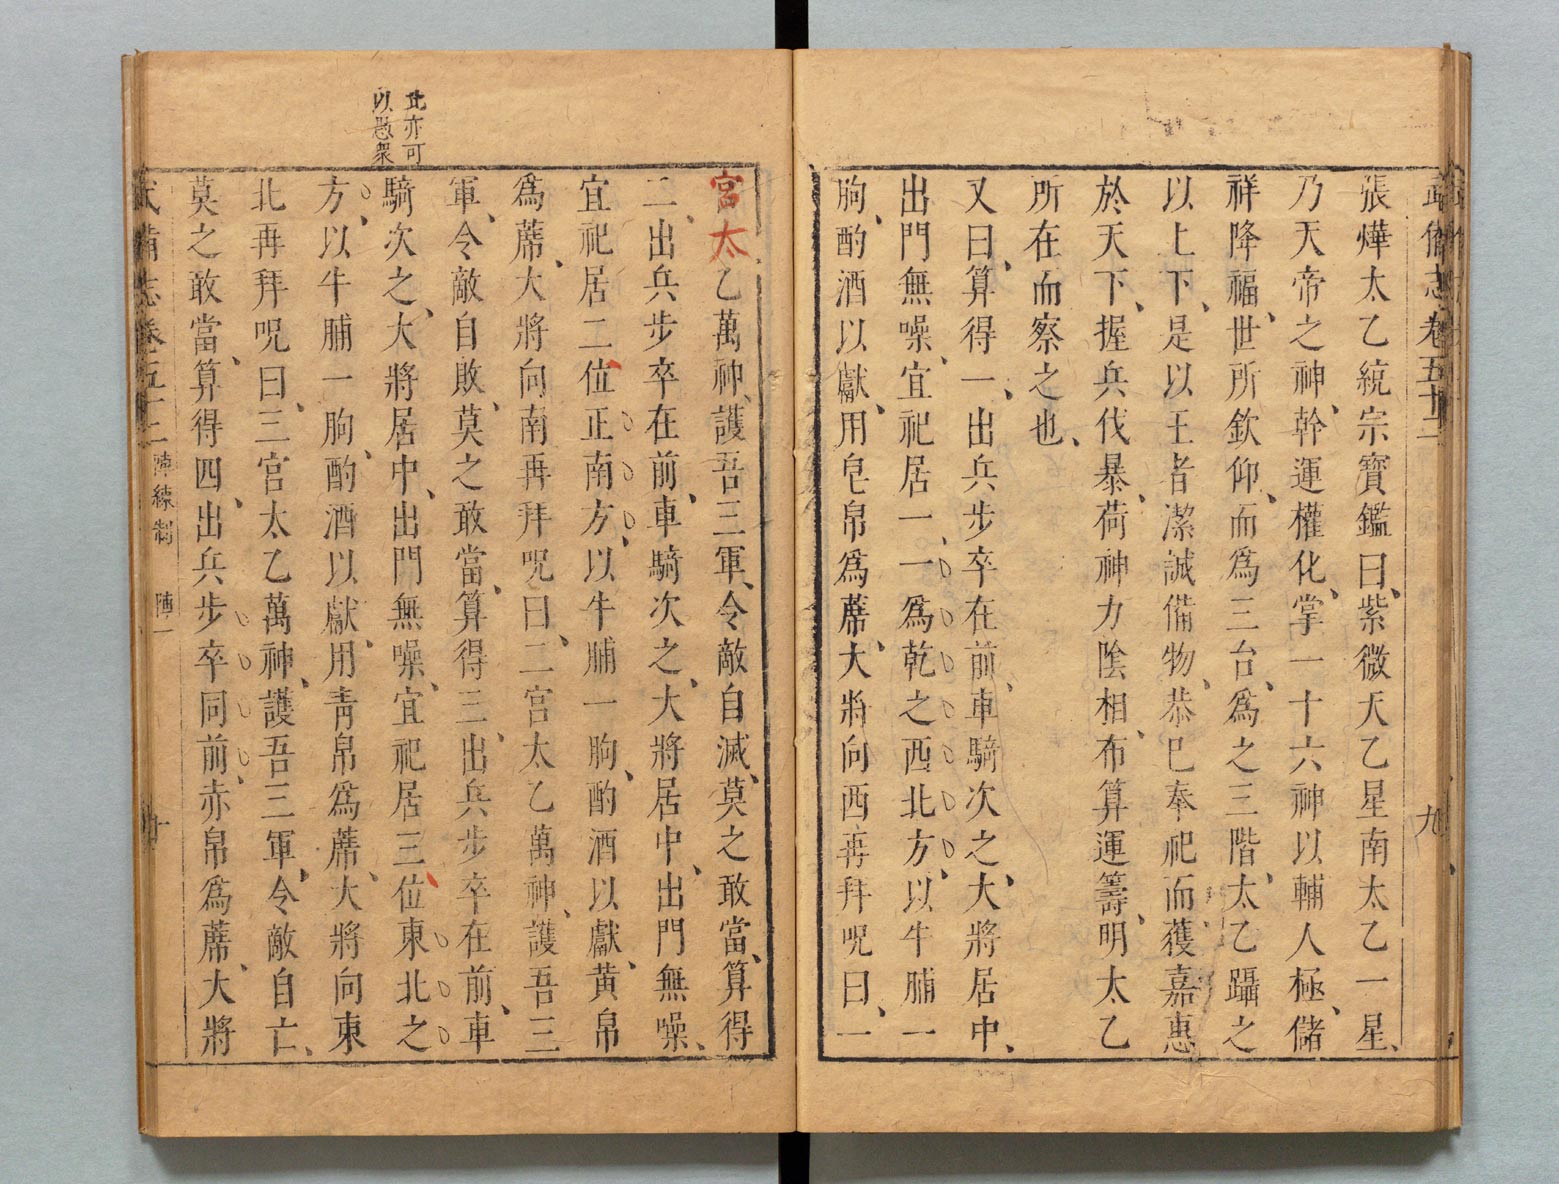 武備志卷五十二
九
張燁太乙統宗寶鑑曰、紫微天乙星南太乙一星、
乃天帝之神、幹運權化、掌一十六神以輔人極、儲
祥降福、世所欽仰、而爲三台、爲之三階、太乙躡之
以上下、是以王者潔誠備物、恭巳奉祀而、獲嘉惠
於天下、握兵伐暴、荷神力陰相、布算運籌、明太乙
所在而察之也、
又曰、算得一、出兵步卒在前、車騎次之、大將居中、
出門無噪、宜祀居一、一爲乾之西北方、以牛脯一
朐、酌酒以獻、用皂帛爲蓆、大將向西再拜呪曰、一
宮太乙萬神、護吾三軍、令敵自滅、莫之敢當、算得
二、出兵步卒在前、車騎次之、大將居中、出門無噪、
宜祀居二位正南方、以牛脯一朐、酌酒以獻、黄帛
爲蓆、大將向南再拜呪曰、二宮太乙萬神、護吾三
軍、令敵自敗、莫之敢當、算得三、出兵步卒在前、車
騎次之、大將居中、出門無噪、宜祀居三位東北之
此亦可
以愚衆
方、以牛脯一朐、酌酒以獻、用靑帛爲蓆、大將向東
北再拜呪曰、三宮太乙萬神、護吾三軍、令敵自亡、
莫之敢當、算得四、出兵步卒同前、赤帛爲蓆、大將
武備志卷五十二 陣練制 陣一 十